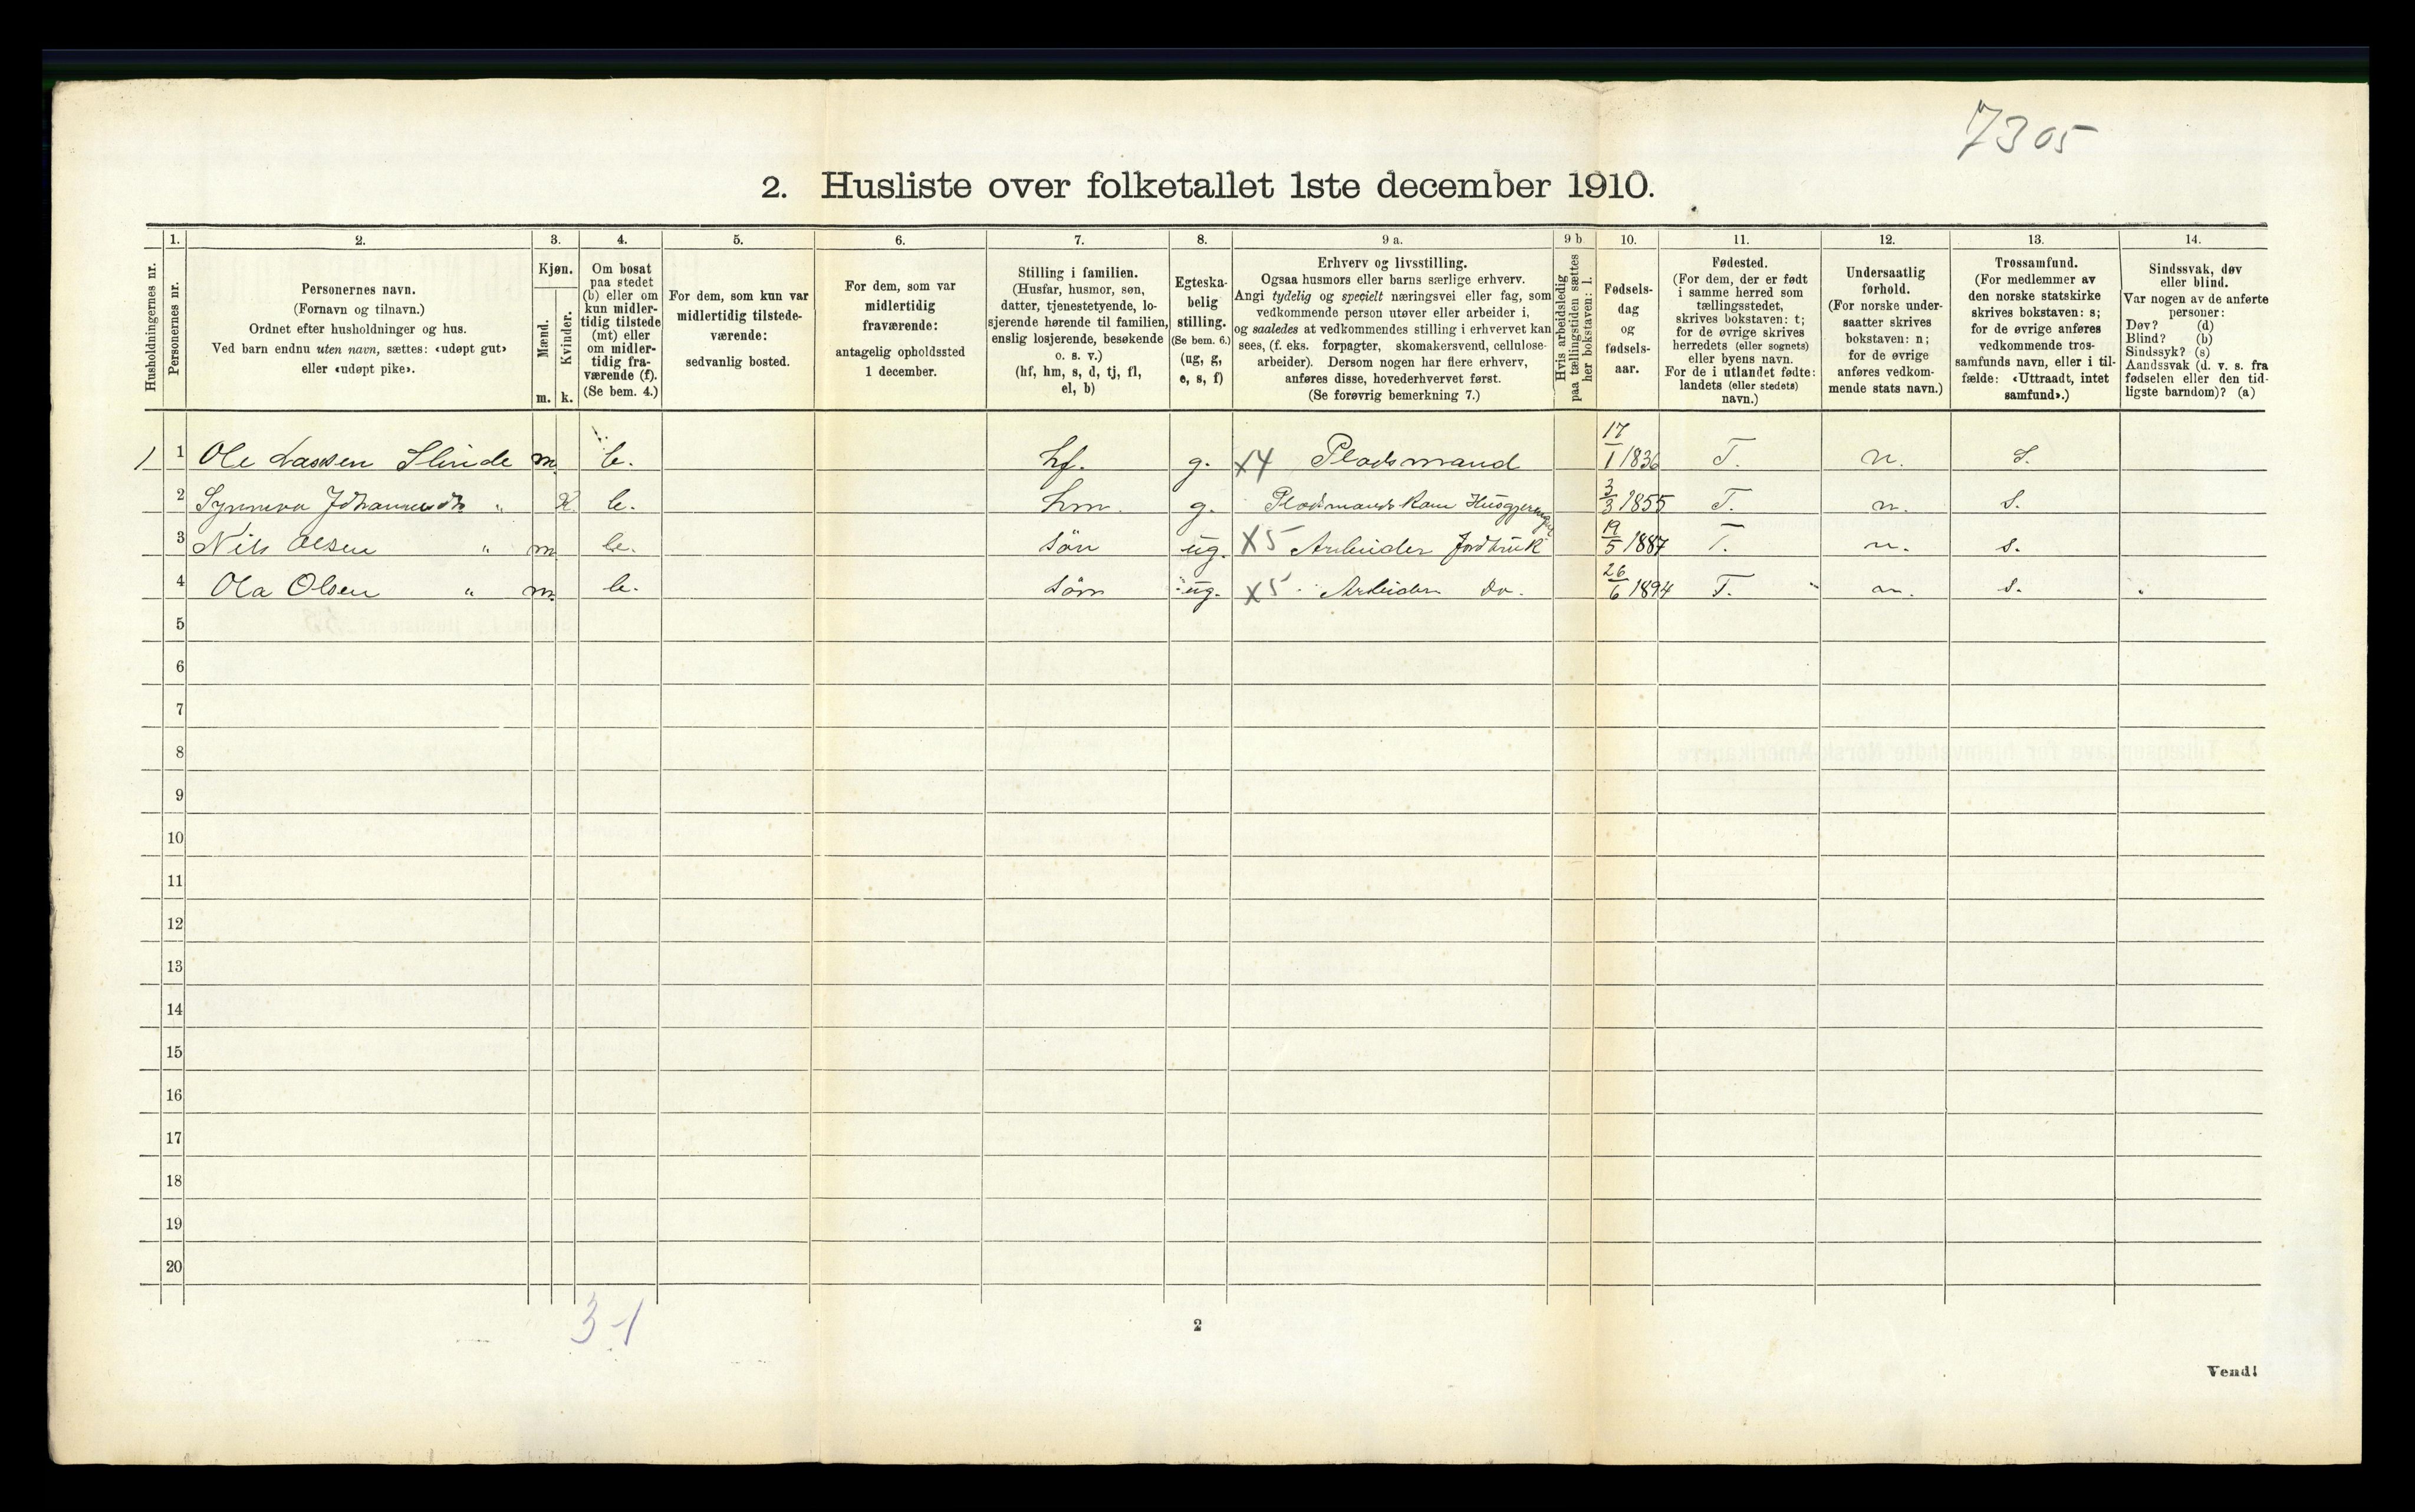 7305
2. Husliste over folketallet 1ste december 1910.
Husholdningernes nr.
1.
Personernes nr.
2.
Personernes navn.
(Fornavn og tilnavn.)
Ordnet efter husholdninger og hus.
Ved barn endnu uten navn, sættes: «udøpt gut»
eller «udøpt pike».
3.
Kjøn.
Mænd.
Kvinder.
m. k.
4.
Om bosat
paa stedet
(b) eller om
kun midler-
tidig tilstede
(mt) eller
om midler-
tidig fra-
værende (f).
(Se bem. 4.)
5.
For dem, som kun var
midlertidig tilstede-
værende:
sedvanlig bosted.
6.
For dem, som var
midlertidig
fraværende:
antagelig opholdssted
1 december.
7.
Stilling i familien.
(Husfar, husmor, søn,
datter, tjenestetyende, lo-
sjerende hørende til familien,
enslig losjerende, besøkende
o. s. v.)
(hf, hm, s, d, tj, fl,
el, b)
8.
Egteska-
belig
stilling.
(Se bem. 6.)
(ug, g,
e, s, f)
9 a.
Erhverv og livsstilling.
Ogsaa husmors eller barns særlige erhverv.
Angi tydelig og specielt næringsvei eller fag, som
vedkommende person utøver eller arbeider i,
og saaledes at vedkommendes stilling i erhvervet kan
sees, (f. eks. forpagter, skomakersvend, cellulose-
arbeider). Dersom nogen har flere erhverv,
anføres disse, hovederhvervet først.
(Se forøvrig bemerkning 7.)
9 b
Hvis arbeidsledig
paa tællingstiden sættes
her bokstaven: l.
10.
Fødsels-
dag
og
fødsels-
aar.
11.
Fødested.
(For dem, der er født
i samme herred som
tællingsstedet,
skrives bokstaven: t;
for de øvrige skrives
herredets (eller sognets)
eller byens navn.
For de i utlandet fødte:
landets (eller stedets)
navn.)
12.
Undersaatlig
forhold.
(For norske under-
saatter skrives
bokstaven: n;
for de øvrige
anføres vedkom-
mende stats navn.)
13.
Trossamfund.
(For medlemmer av
den norske statskirke
skrives bokstaven: s;
for de øvrige anføres
vedkommende tros-
samfunds navn, eller i til-
fælde: «Uttraadt, intet
samfund».)
14.
Sindssvak, døv
eller blind.
Var nogen av de anførte
personer:
Døv? (d)
Blind? (b)
Sindssyk? (s)
Aandssvak (d. v. s. fra
fødselen eller den tid-
ligste barndom)? (a)
1 1 Ole Lassen Slinde m b. hf. g. X4 Pladsmand 17/1 1836 T. n. S.
2 Synneva Johannesdtr " K b. hm. g. Pladsmands Kone Husgjerning 3/3 1855 T. n. S.
3 Nils Olsen " m b. sön ug. X5 Arbeider Jordbruk 19/5 1887 T. n. s.
4 Ola Olsen " m. b. sön ug. X5 Arbeider do. 26/6 1894 T. n. s.
5
6
7
8
9
10
11
12
13
14
15
16
17
18
19
20
3-1
2
Vend!